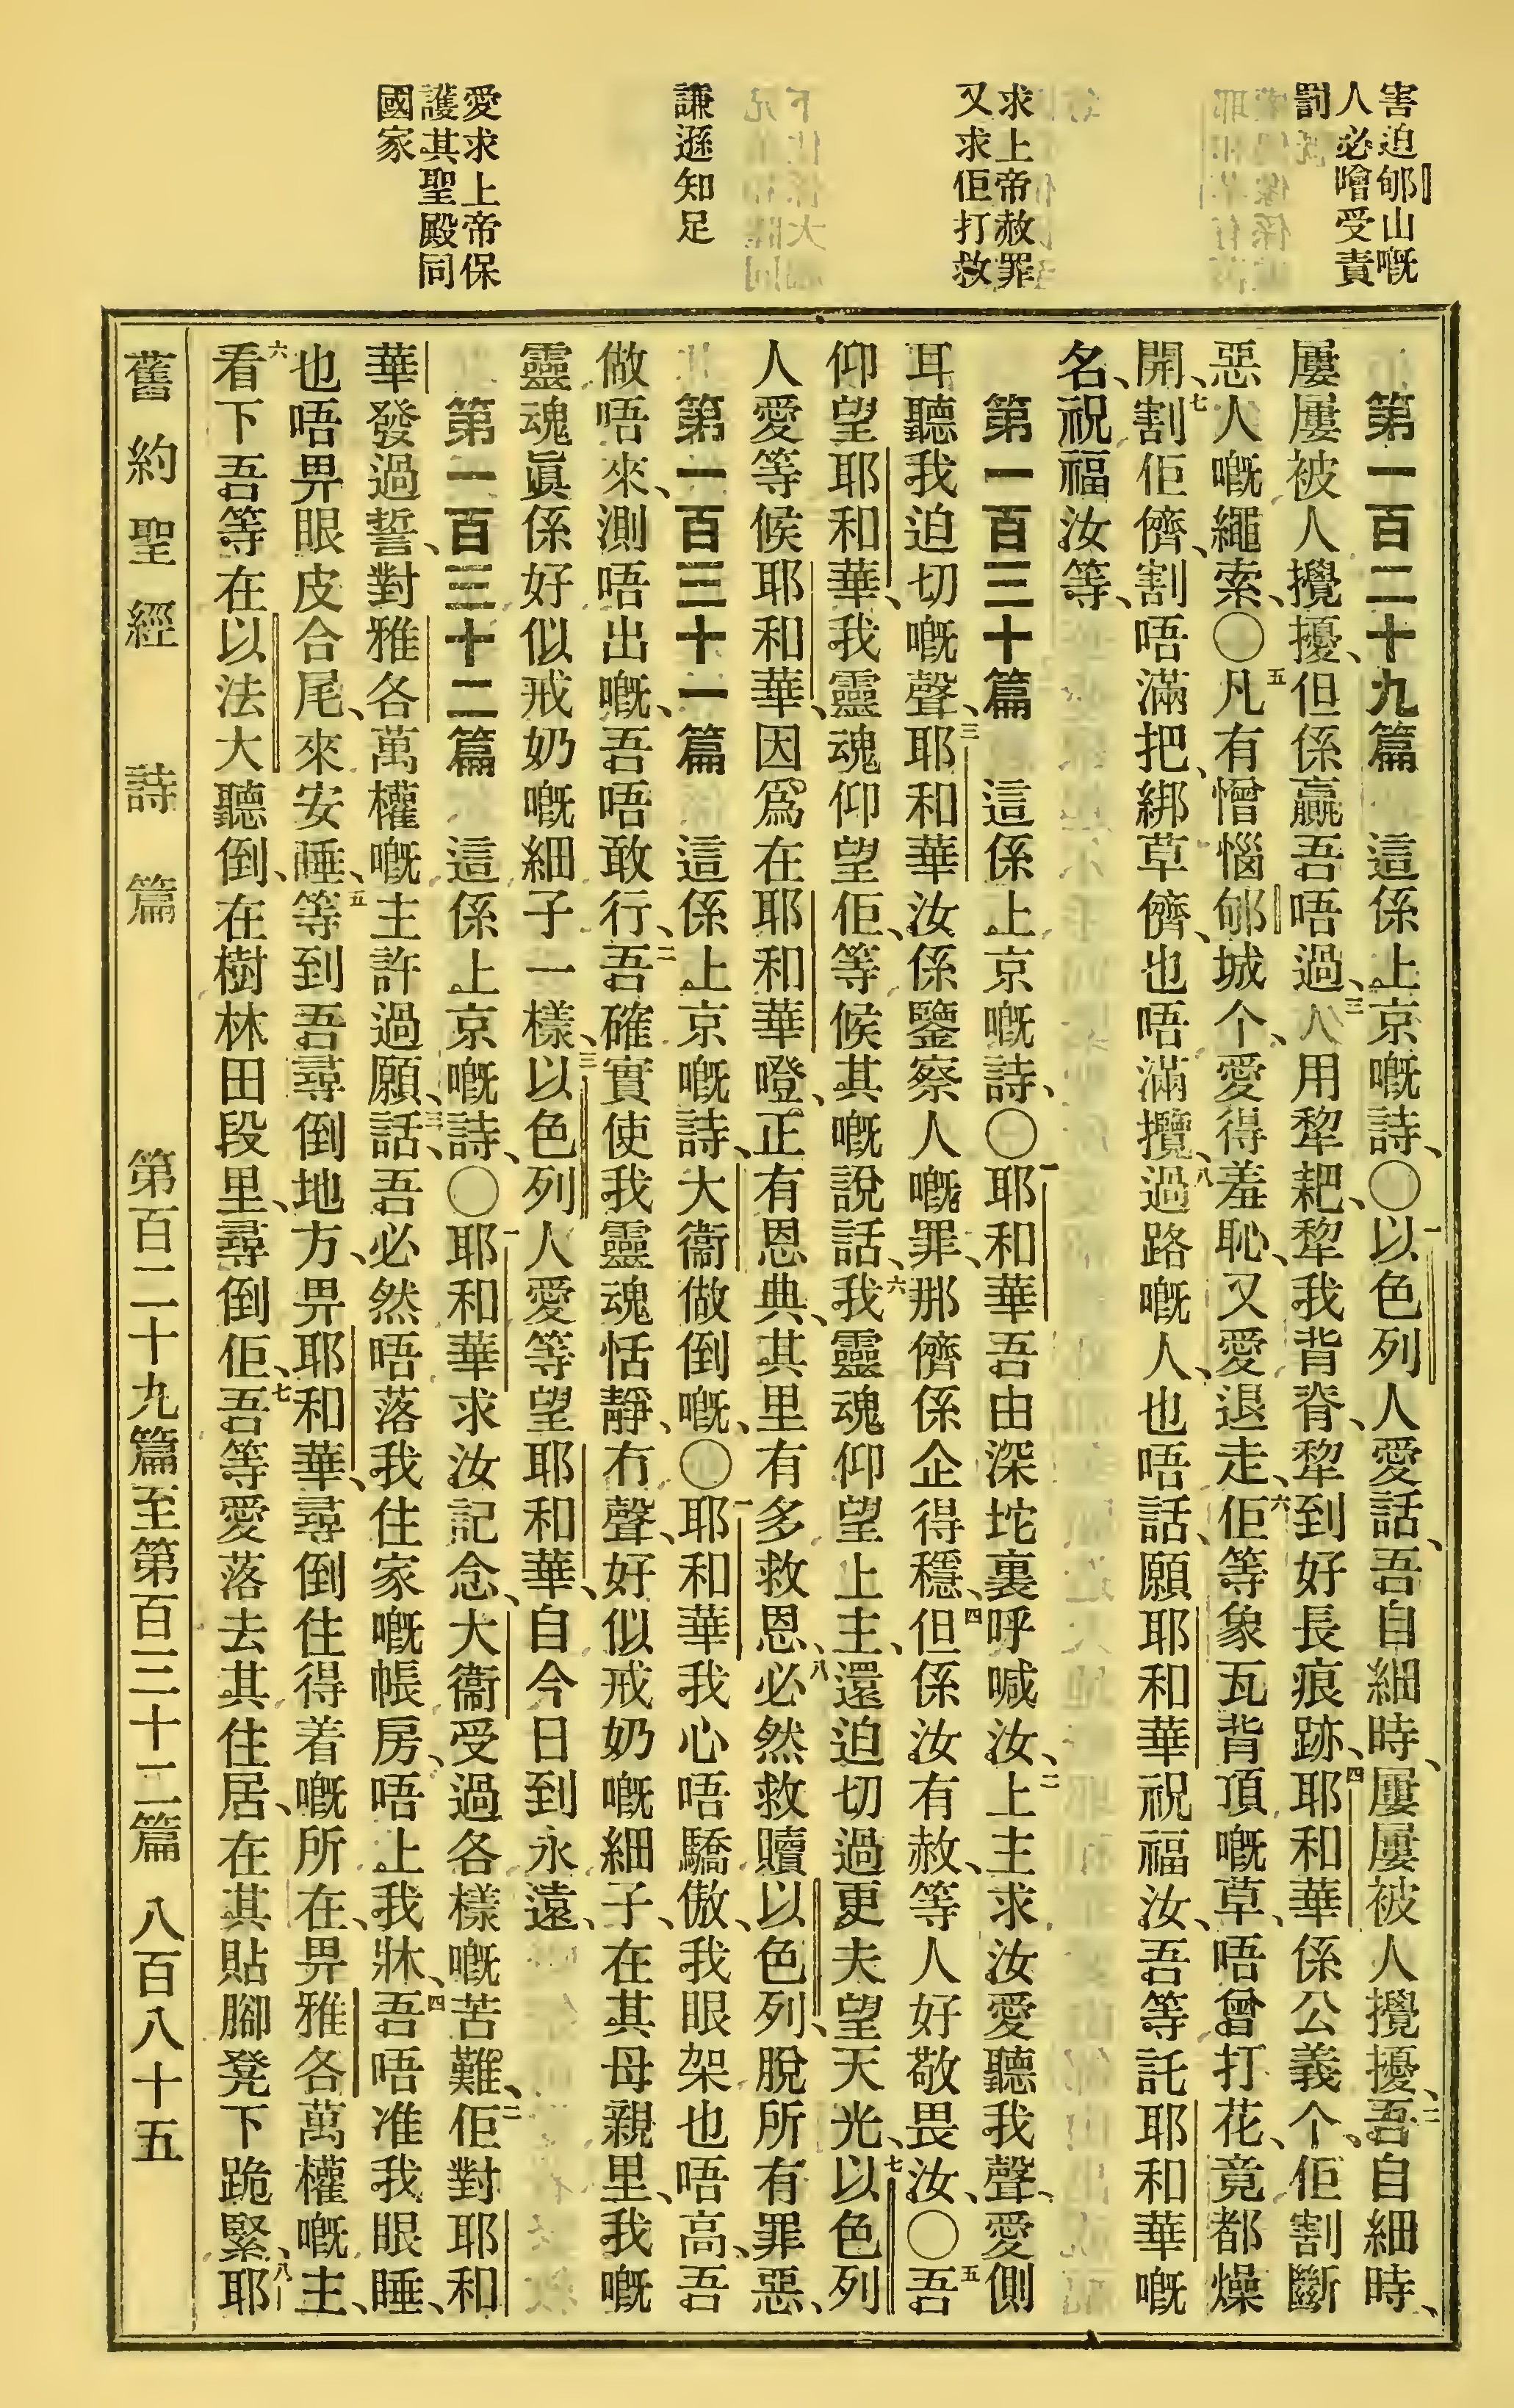 害迫郇山嘅
人必噲受責
罰
求上帝赦罪
又求佢打救
謙遜知足
愛求上帝保
護其聖殿同
國家
第一百二十九篇 這係上京嘅詩、〇一以色列人愛話、吾自細時、屢屢被人攪擾、二吾自細時、
屢屢被人攪擾、但係贏吾唔過、三人用犂耙、犂我背脊、犂到好長痕跡、四耶和華係公義个、佢割斷
惡人嘅繩索、〇五凡有憎惱郇城个、愛得羞恥、又愛退走、六佢等象瓦背頂嘅草、唔曾打花、竟都燥
開、七割佢儕、割唔滿把、綁草儕、也唔滿攬、八過路嘅人、也唔話、願耶和華祝福汝、吾等託耶和華嘅
名、祝福汝等、
第一百三十篇 這係上京嘅詩、〇一耶和華吾由深坨裏呼喊汝、二上主求汝愛聽我聲、愛側
耳聽我迫切嘅聲、三耶和華汝係鑒察人嘅罪、那儕係企得穩、四但係汝有赦、等人好敬畏汝、〇五吾
仰望耶和華、我靈魂仰望佢、等候其嘅說話、六我靈魂仰望上主、還迫切過更夫望天光、七以色列
人愛等候耶和華、因爲在耶和華噔、正有恩典、其里有多救恩、八必然救贖以色列、脫所有罪惡、
第一百三十一篇 這係上京嘅詩、大衞做倒嘅、〇一耶和華我心唔驕傲、我眼架也唔高、吾
做唔來、測唔出嘅、吾唔敢行、二吾確實使我靈魂恬靜、冇聲、好似戒奶嘅細子、在其母親里、我嘅
靈魂眞係好似戒奶嘅細子一樣、三以色列人愛等望耶和華、自今日到永遠、
第一百三十二篇 這係上京嘅詩、〇一耶和華求汝記念、大衞受過各樣嘅苦難、二佢對耶和
華發過誓、對雅各萬權嘅主許過願、三話、吾必然唔落我住家嘅帳房、唔上我牀、四吾唔准我眼睡、
也唔畀眼皮合尾、來安睡、五等到吾尋倒地方、畀耶和華、尋倒住得着嘅所在、畀雅各萬權嘅主、
六看下吾等在以法大聽倒、在樹林田段里、尋倒佢、七吾等愛落去其住居、在其貼腳凳下跪緊、八耶
舊約聖經 詩篇 第百二十九篇至第百三十二篇 八百八十五